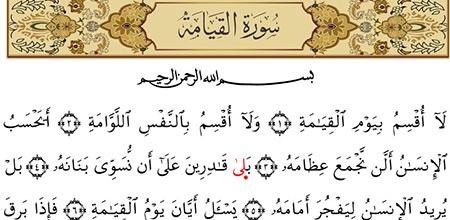 سُورَةُ القِيَامَةِ
بسم الله الرحمن الرحيم
لَآ أُقْسِمُ بِيَوْمِ ٱلْقِيَـٰمَةِ ﴿١﴾ وَلَآ أُقْسِمُ بِٱلنَّفْسِ ٱللَّوَّامَةِ ﴿٢﴾ أَيَحْسَبُ
ٱلْإِنسَـٰنُ أَلَّن نَّجْمَعَ عِظَامَهُۥ ﴿٣﴾ بَلَىٰ قَـٰدِرِينَ عَلَىٰٓ أَن نُّسَوِّىَ بَنَانَهُۥ ﴿٤﴾ بَلْ
يُرِيدُ ٱلْإِنسَـٰنُ لِيَفْجُرَ أَمَامَهُۥ ﴿٥﴾ يَسْـَٔلُ أَيَّانَ يَوْمُ ٱلْقِيَـٰمَةِ ﴿٦﴾ فَإِذَا بَرِقَ